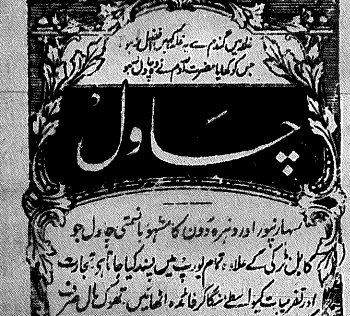 غلہ میں گندم سے یہ غلہ کہیں افضل نہ ہو
جس کو کھایا حضرت آدم نے وہ چاول نہ ہو
چاول
سہارنپور اور دہرہ دون کا مشہور باسمتی چاول جو
کابل ٹرکی کے علاوہ تمام یورپ میں پسند کیا جاتا ہے، تجارت
اور تقریبات کیواسطے منگا کر فائدہ اٹھائیں تھوک مال صرف